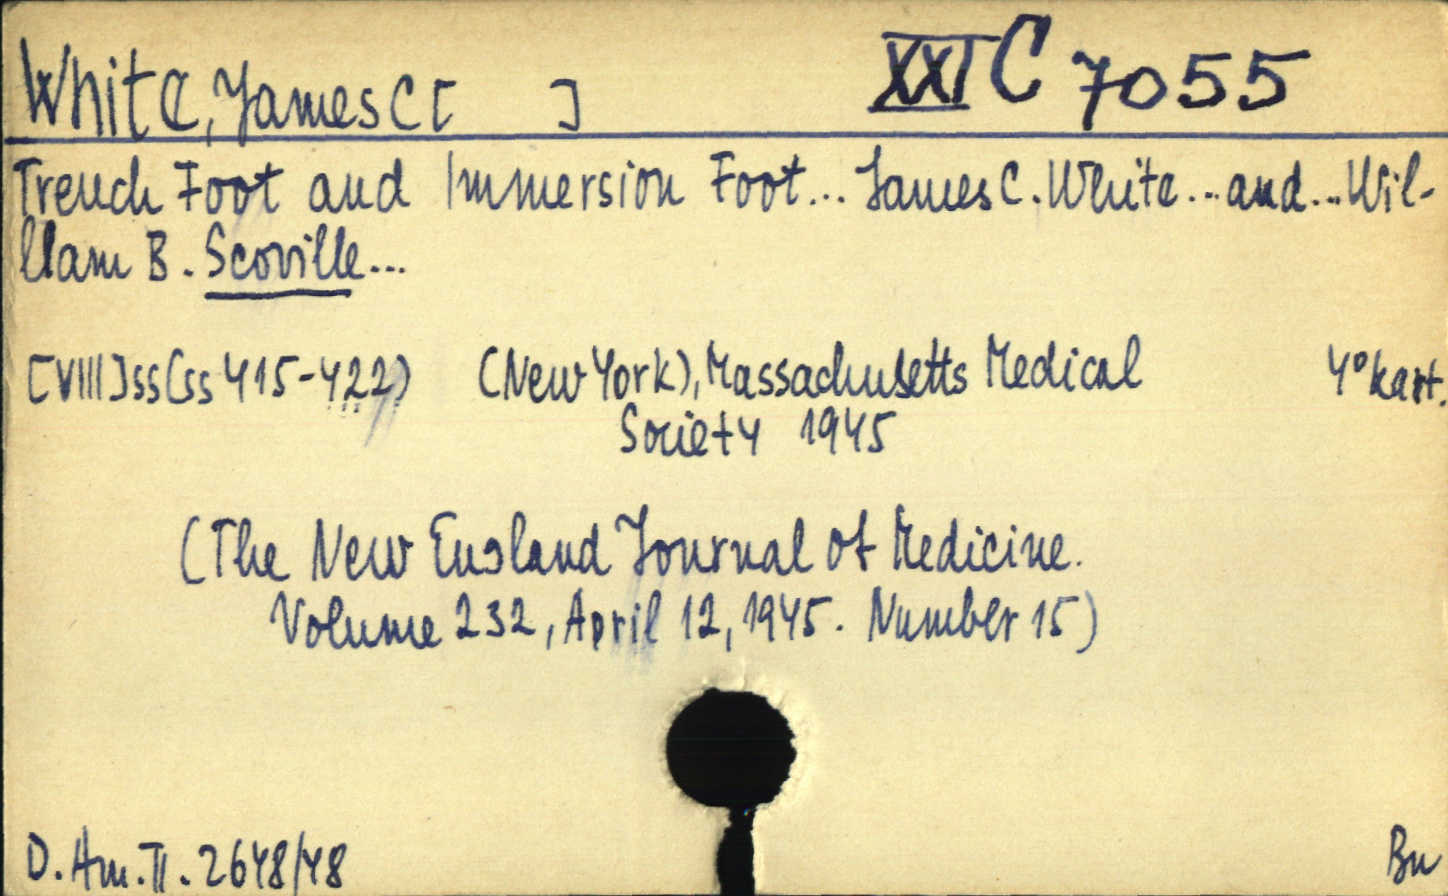 White, James C [ ] XXI C 7055
Trench Foot and Immersion Foot... James C. White... and... Wil-
liam B. Scoville...
[VIII] ss (ss 415-422) (New York), Massachusetts Medical 4° kart.
Society 1945
(The New England Journal of Medicine.
Volume 232, April 12, 1945. Number 15)
D. Am. II. 2648/48 Bn